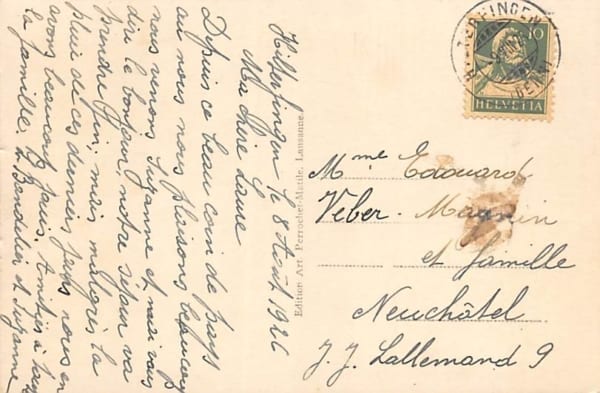 Hilterfingen le 8 Août 1926
Ma chère Laure
Depuis ce beau coin de pays
où nous nous plaisons beaucoup
nous venons Suzanne et moi vous
dire le bonjour, notre séjour va
prendre fin, mais malgrès la
pluie de ces derniers jours nous en
avons beaucoup joui. Amitiés à toute
la famille. L. Bandelier et Suzanne
Edition Art. Perrochet-Matile, Lausanne.
HILTERFINGEN
(BERN)
10
HELVETIA
Mme Edouard
Veber-Maumin
et famille
Neuchâtel
J. J. Lallemand 9